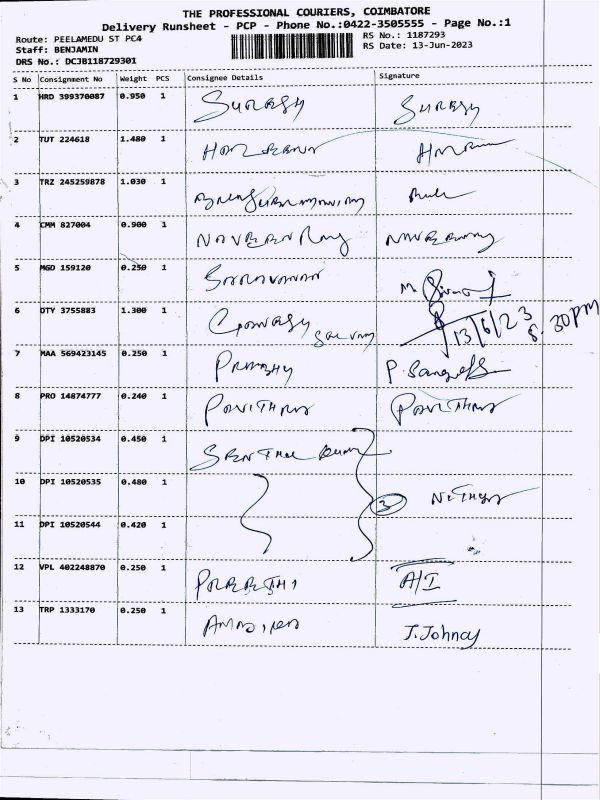 THE PROFESSIONAL COURIERS, COIMBATORE
Delivery Runsheet - PCP - Phone No.:0422-3505555 - Page No.:1
Route: PEELAMEDU ST PC4 RS No.: 1187293
Staff: BENJAMIN RS Date: 13-Jun-2023
DRS No.: DCJB118729301
S No Consignment No Weight PCS Consignee Details Signature
1 HRD 399370087 0.950 1 SURESH SURESH
2 TUT 224618 1.480 1
3 TRZ 245259878 1.030 1
4 CMM 827004 0.900 1 NAVEEN RAJ
5 MGD 159120 0.250 1 SARAVANAN
6 DTY 3755883 1.300 1 13/6/23 8.30PM
7 MAA 569423145 0.250 1 PRABHU
8 PRO 14874777 0.240 1 PAVITHRA PAVITHRA
9 DPI 10520534 0.450 1 SENTHIL KUMAR
10 DPI 10520535 0.480 1 3 NITHYA
11 DPI 10520544 0.420 1
12 VPL 402248870 0.250 1 PREETHI A/I
13 TRP 1333170 0.250 1 J.Johncy